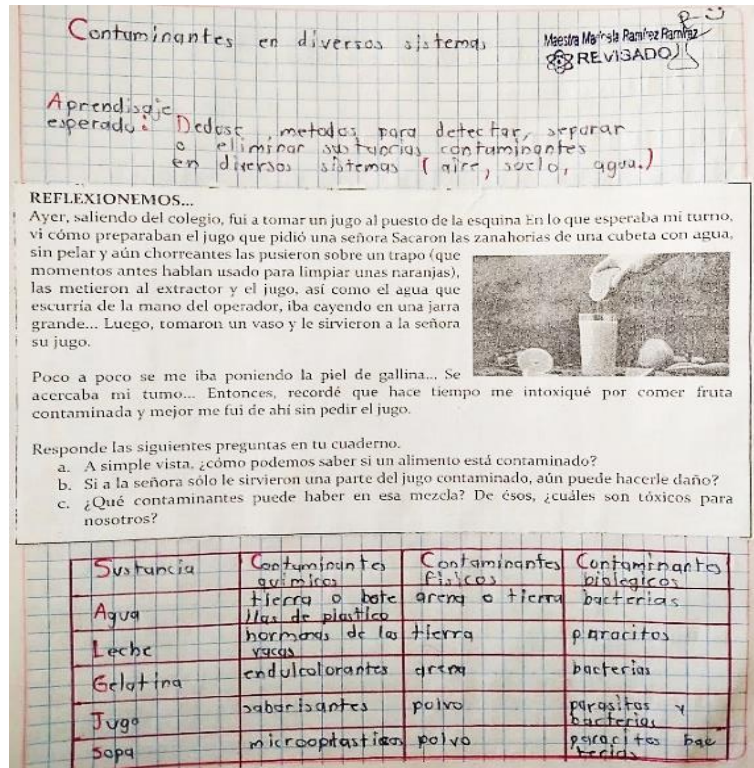 Contaminantes en diversos sistemas
Maestra Mariela Ramírez Ramírez
REVISADO
Aprendisaje
esperado: Dedusc, metodos para detectar, separar
o eliminar sustancias contaminantes
en diversos sistemas (aire, suelo, agua.)
REFLEXIONEMOS...
Ayer, saliendo del colegio, fui a tomar un jugo al puesto de la esquina En lo que esperaba mi turno,
vi cómo preparaban el jugo que pidió una señora Sacaron las zanahorias de una cubeta con agua,
sin pelar y aún chorreantes las pusieron sobre un trapo (que
momentos antes hablan usado para limpiar unas naranjas),
las metieron al extractor y el jugo, así como el agua que
escurría de la mano del operador, iba cayendo en una jarra
grande... Luego, tomaron un vaso y le sirvieron a la señora
su jugo.
Poco a poco se me iba poniendo la piel de gallina... Se
acercaba mi tumo... Entonces, recordé que hace tiempo me intoxiqué por comer fruta
contaminada y mejor me fui de ahí sin pedir el jugo.
Responde las siguientes preguntas en tu cuaderno.
a. A simple vista, ¿cómo podemos saber si un alimento está contaminado?
b. Si a la señora sólo le sirvieron una parte del jugo contaminado, aún puede hacerle daño?
c. ¿Qué contaminantes puede haber en esa mezcla? De ésos, ¿cuáles son tóxicos para
nosotros?
Sustancia Contaminantes quimicos Contaminantes fisicos Contaminantes biologicos
Agua tierra o bote llas de plastico arena o tierra bacterias
Leche hormonas de las vacas tierra paracitos
Gelatina endulcolorantes arena bacterias
Jugo saborisantes polvo parasitos y bacterias
Sopa microoplasticos polvo paracitos bac terias